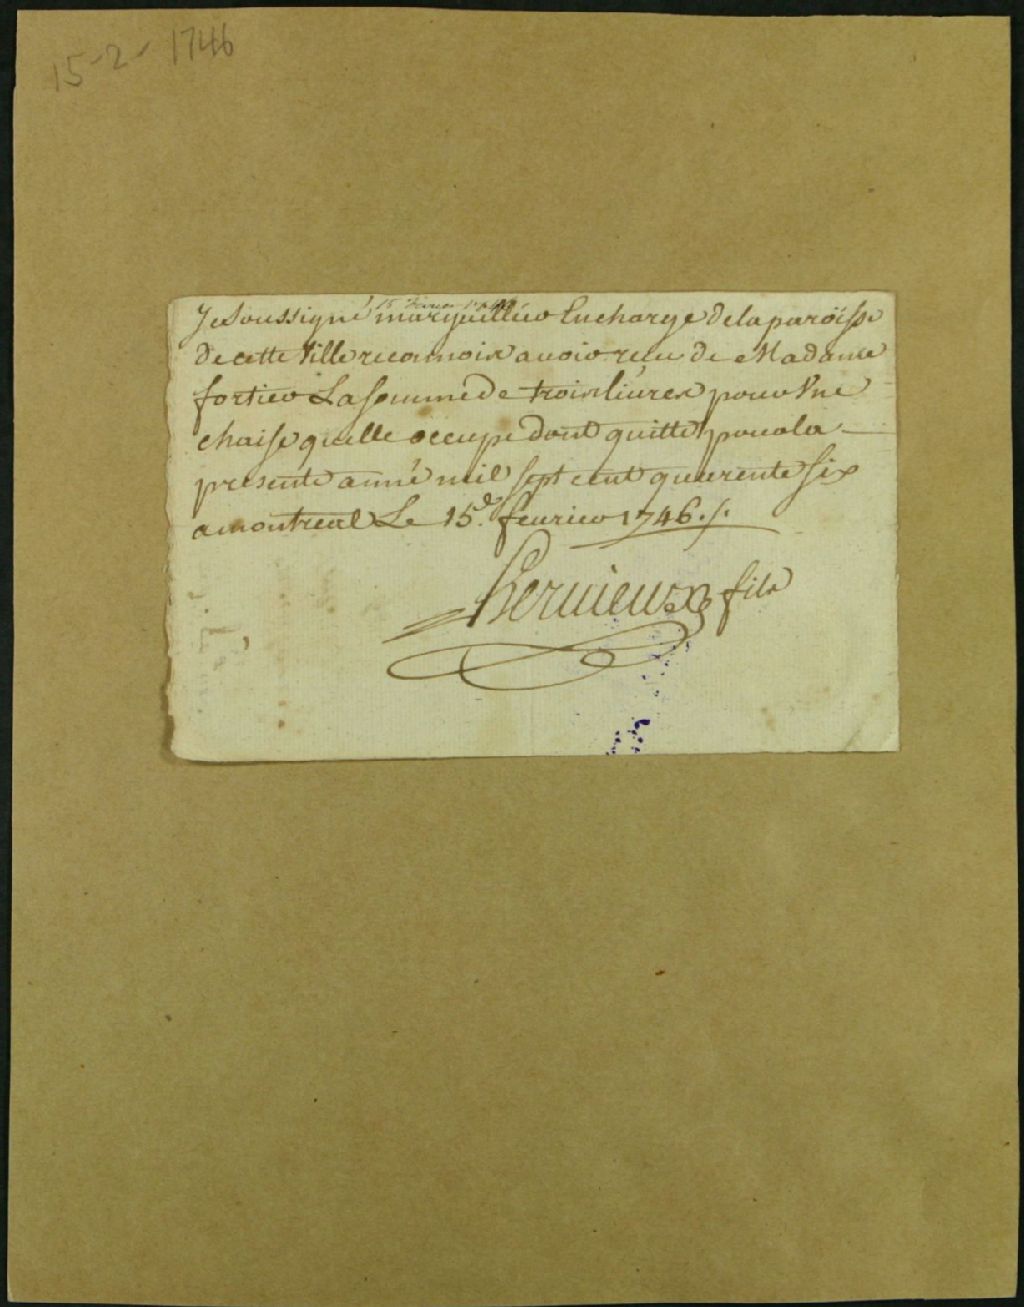 15-2-1746
15 fevrier 1746
Je Soussigné marguillier En charge de la paroisse
de cette Ville reconnois avoir reçu de Madame
fortier La somme de trois livres pour Une
chaise quelle occupe dont quitte pour la
presente anné mil sept cent quarente six
a montreal Le 15.e feurier 1746./.
Hervieux fils